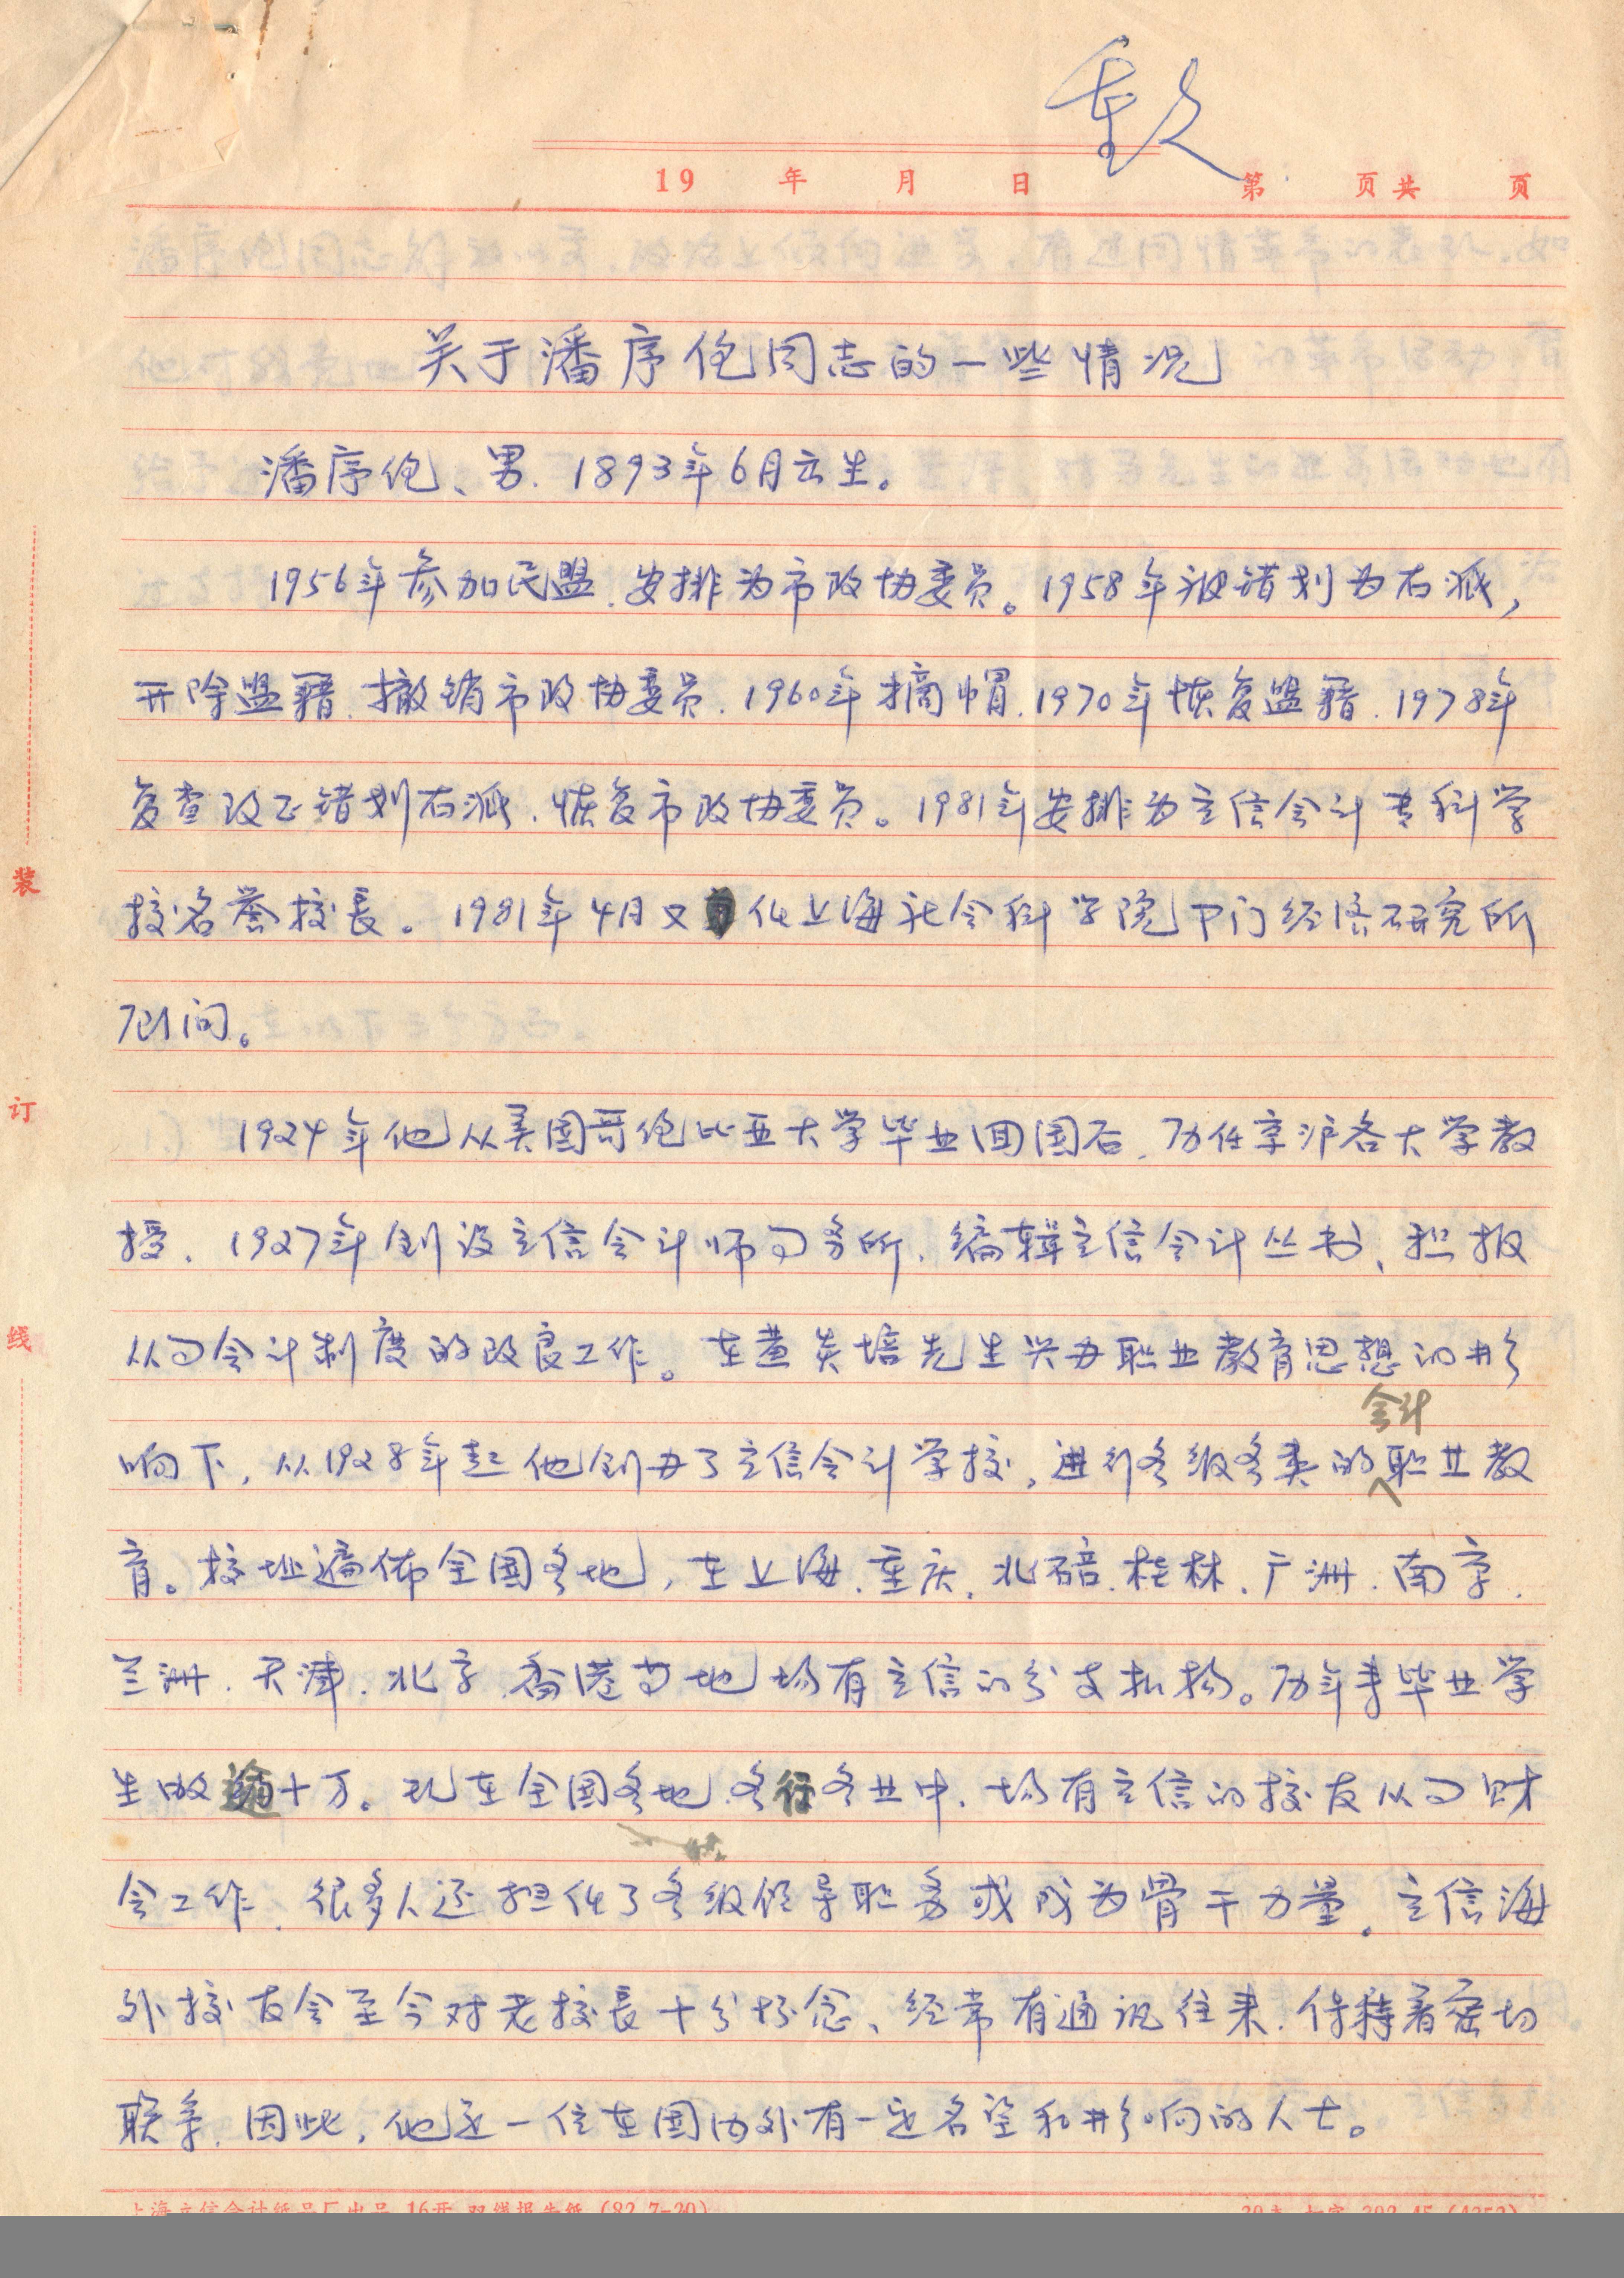 重文
19 年 月 日 第 页共 页
关于潘序伦同志的一些情况
潘序伦、男、1893年6月出生。
1956年参加民盟、安排为市政协委员。1958年被错划为右派，
开除盟籍、撤销市政协委员、1960年摘帽、1970年恢复盟籍、1978年
复查改正错划右派、恢复市政协委员。1981年安排为立信会计专科学
校名誉校長。1981年4月又任上海社会科学院部门经济研究所
顾问。
1924年他从美国哥伦比亚大学毕业回国后、历任京沪各大学教
授、1927年创设立信会计师事务所、编辑立信会计丛书、积极
从事会计制度的改良工作。在黄炎培先生兴办职业教育思想的影
会计
响下，从1928年起他创办了立信会计学校，进行各级各类的职业教
育。校址遍佈全国各地，在上海、重庆、北碚、桂林、广洲、南京、
兰洲、天津、北京、香港等地均有立信的分支机构。历年来毕业学
生数逾十万。现在全国各地、各行各业中、均有立信的校友从事财
会工作、很多人还担任了各级领导职务或成为骨干力量。立信海
外校友会至今对老校長十分怀念、经常有通讯往来、保持着密切
联系、因此，他是一位在国内外有一定名望和影响的人士。
装
订
线
上海立信会计纸品厂出品 16开 双线报告纸 (82.7-20)